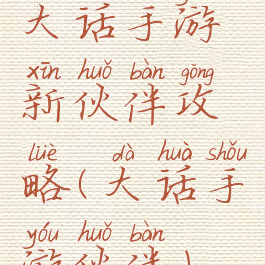 大话手游
xīn huǒ bàn gōng
新伙伴攻
lüè dà huà shǒu
略(大话手
yóu huǒ bàn
游伙伴)